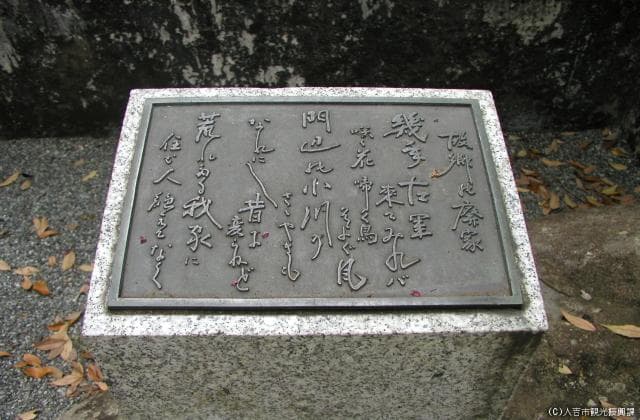 故郷の廃家
幾年古里
来てみれバ
咲く花啼く鳥
そよぐ風
門辺の小川の
ささやきも
なれにし昔に
変らねど
荒れたる我家に
住む人絶えてなく
(C)人吉市観光振興課